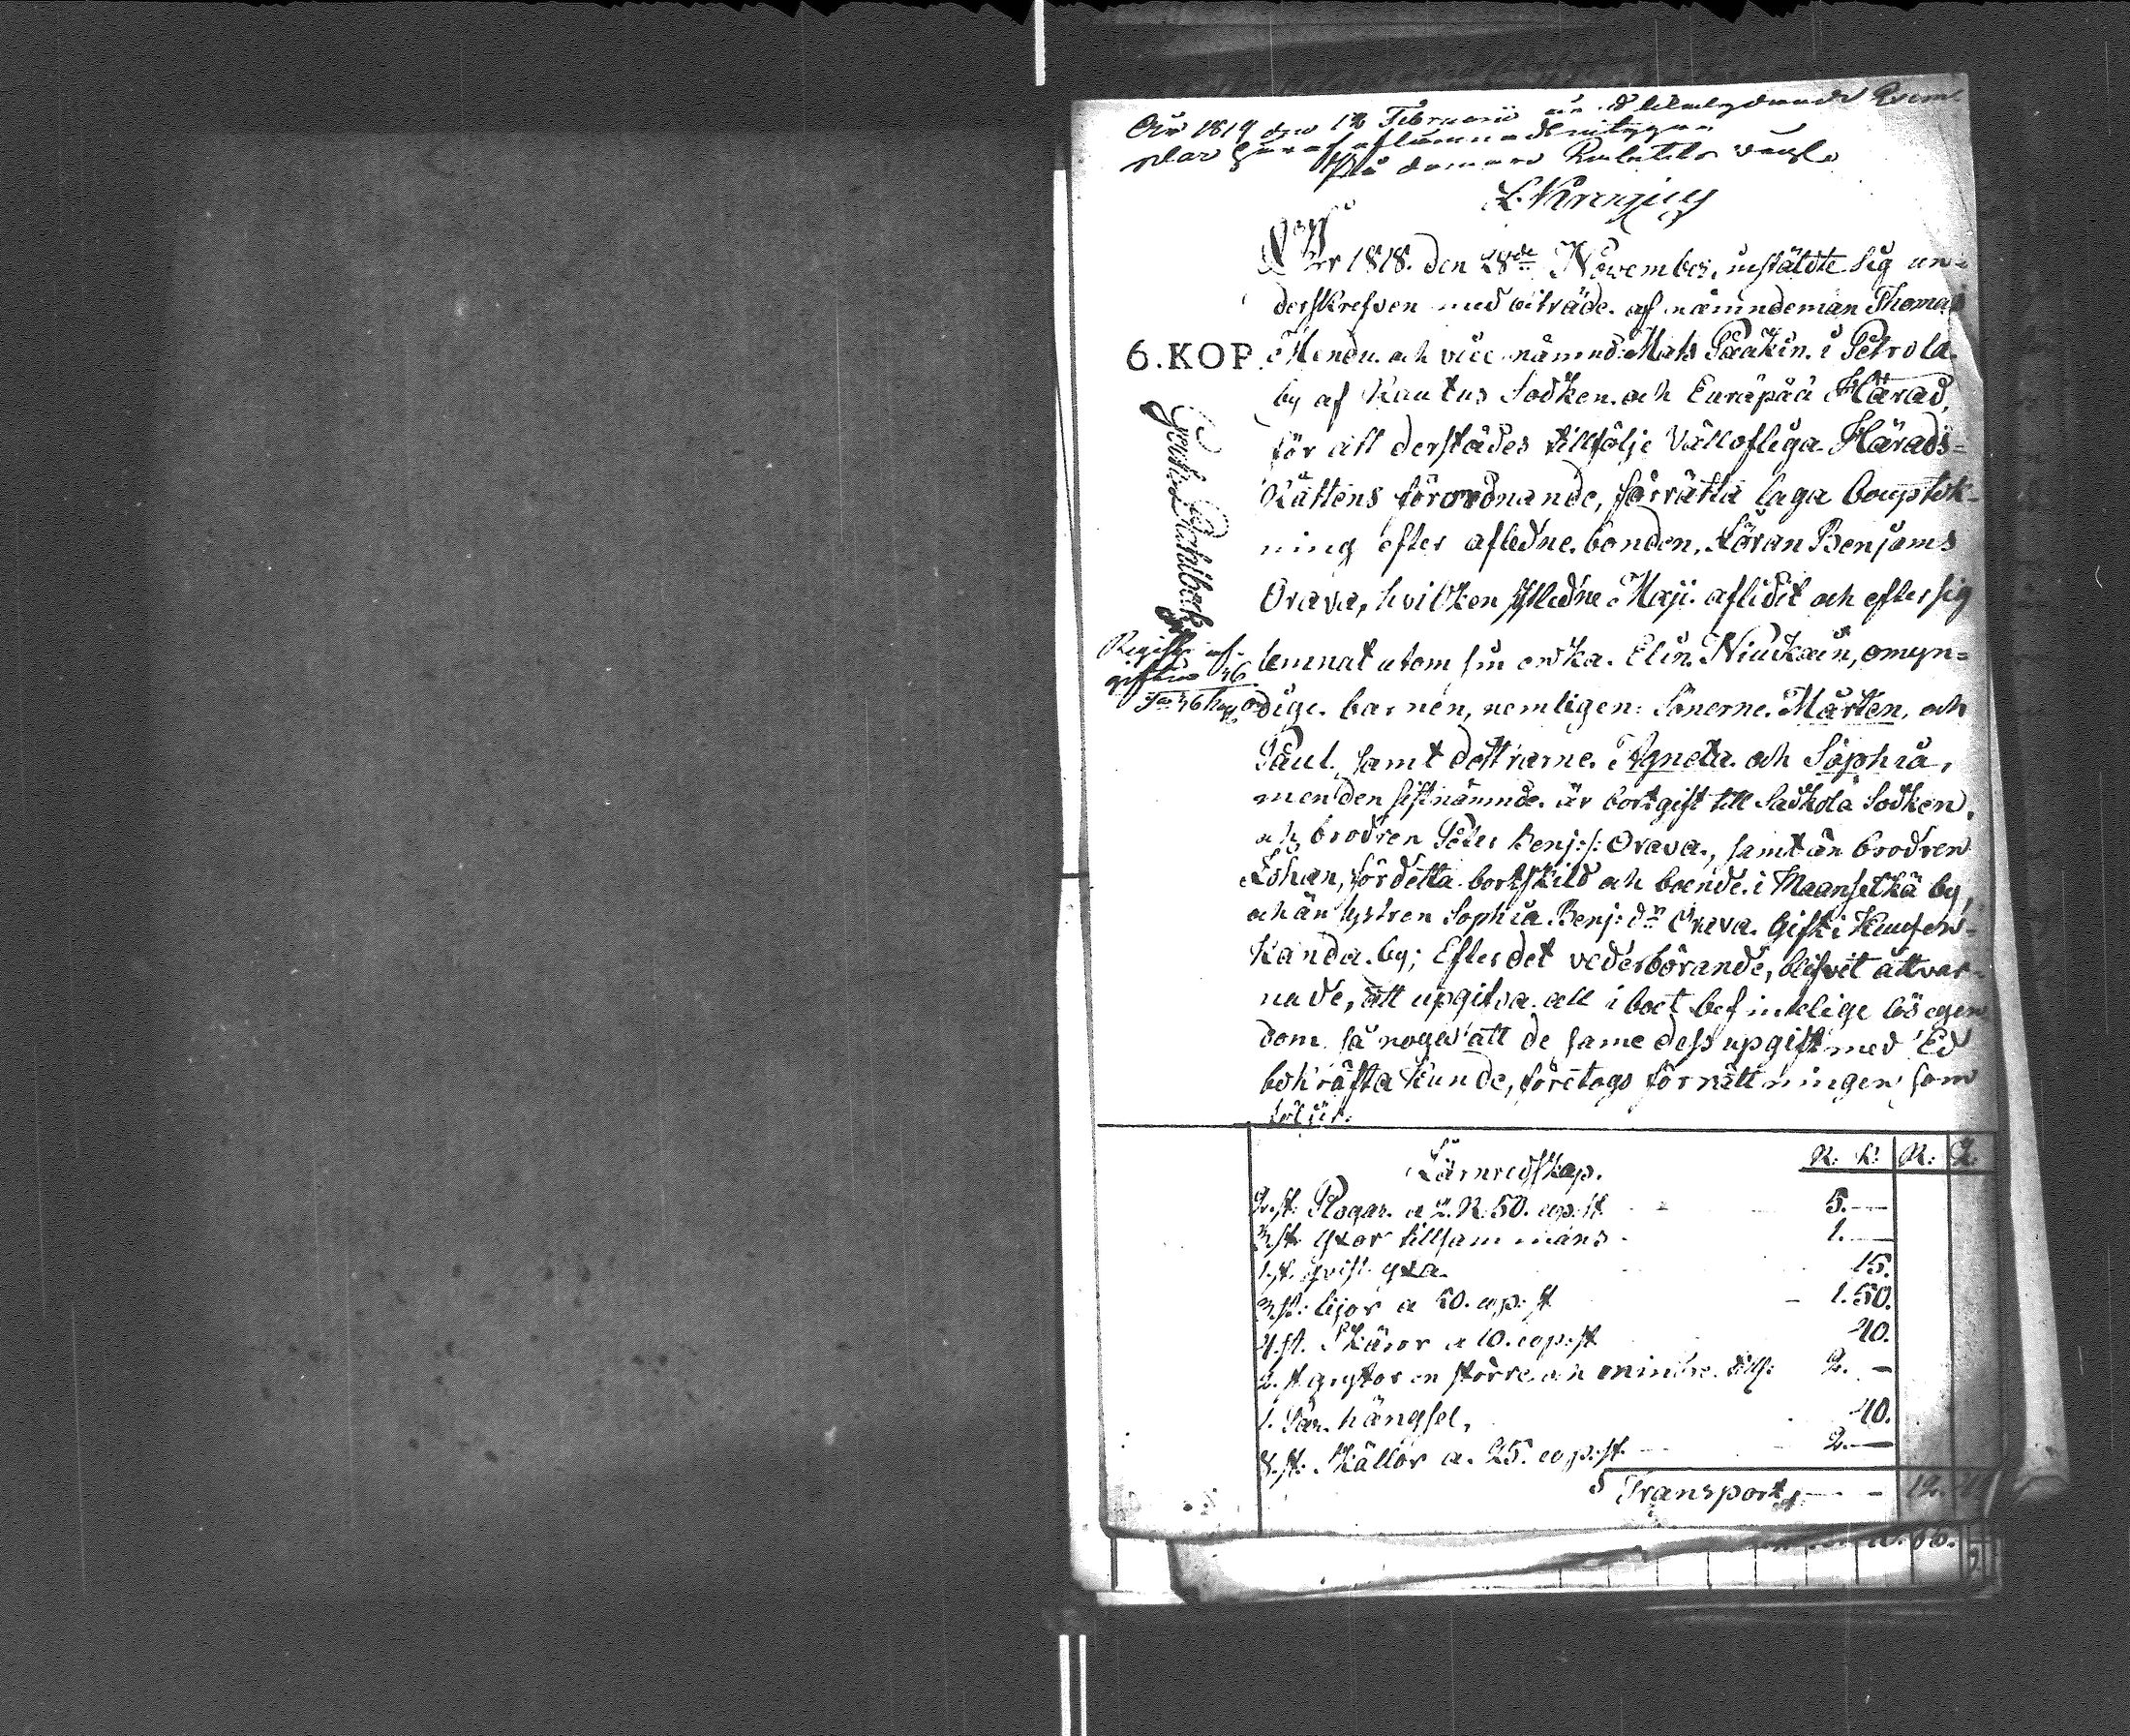 År 1819 den 18 Februarii är et likalydande Exem-
plar häraf aflämnadt intygar
På domare Embetets vägnar
År 1818. den 28de November, instälte sig un-
derskrefven med biträde af nämndeman Thomas
Mendu och vice nämnd: Mats Paakin i Petrola
6. KOP.
by af Kautus Sockn och Euräpää Härad,
för att derstädes tillfölje Vällofliga Härads-
Rättens förordnande, förrätta laga bouptek-
ning efter aflidne bonden, Göran Benjams
Orava, hvilken sistledne Maji aflidit och efter sig
lemnat utom sin enka Elin Niukain, omyn-
dige barnen, nemligen: Sönerne Mårten, och
Paul, samt döttrarne Agneta och Sophia,
men den sistnämnde är bortgift till Sackola Socken,
och brodren Peter Benj:s: Orava, samt än brodren
Johan, för detta bortskild och boende i Maanselkä by,
och än systren Sophia Benj: dr Orava gift i
kanda by; Efter det vederbörande, blifvit åtvar-
nade, att upgifva all i boet befintelige lösegen
dom så noga att de same dess upgift med Ed
bekräfta kunde, företogs förrättningen som
följer:
R: K: R: K.
Järnredskap.
2. st: Plogar a 2. R 50. cop: st 5.—
3. st. yxor tillsammans 1.—
1. st. qvist yxa 15.
3. st: lijor a 50. cop: st 1. 50.
4. st. Skäror a 10. cop: st 40.
2. st grytor en större och en mindre tills: 2. —
1. Par hängsel, 40.
8. st: Skällor a. 25. cop: st. 2.—
Transport 12.